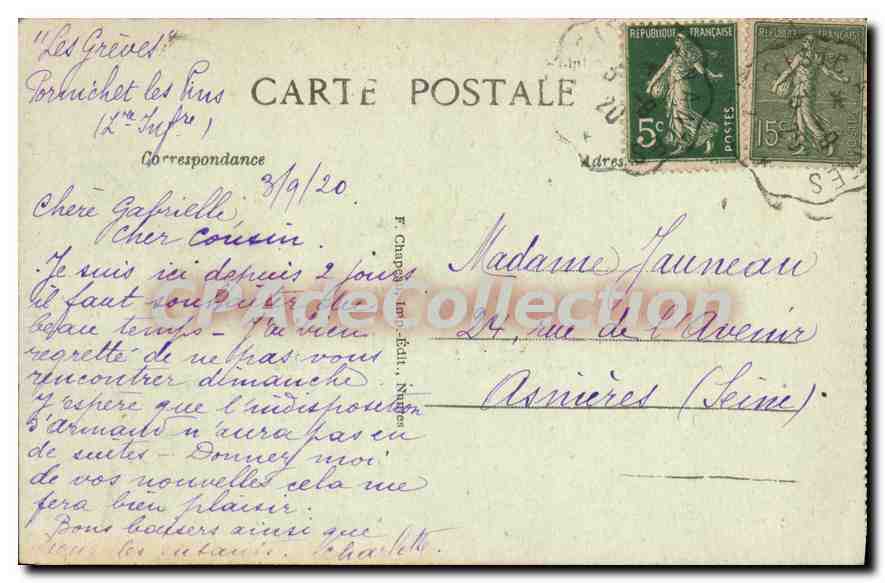 "Les Grèves"
Pornichet les Pins
(Lre Infre)
CARTE POSTALE
Correspondance
RÉPUBLIQUE FRANÇAISE
5c
POSTES
15c
3/9/20
Chère Gabrielle,
Cher Cousin.
Je suis ici depuis 2 jours
il faut souhaiter du
beau temps - J'ai bien
regretté de ne pas vous
rencontrer dimanche.
J'espère que l'indisposition
d'armand n'aura pas eu
de suites - Donnez moi
de vos nouvelles cela me
fera bien plaisir.
Bons baisers ainsi que
pour les enfants. Charlotte
F. Chapeau, Imp.-Édit., Nantes
Madame Jauneau
24, rue de l'Avenir
Asnières (Seine)
CPAdeCollection.com